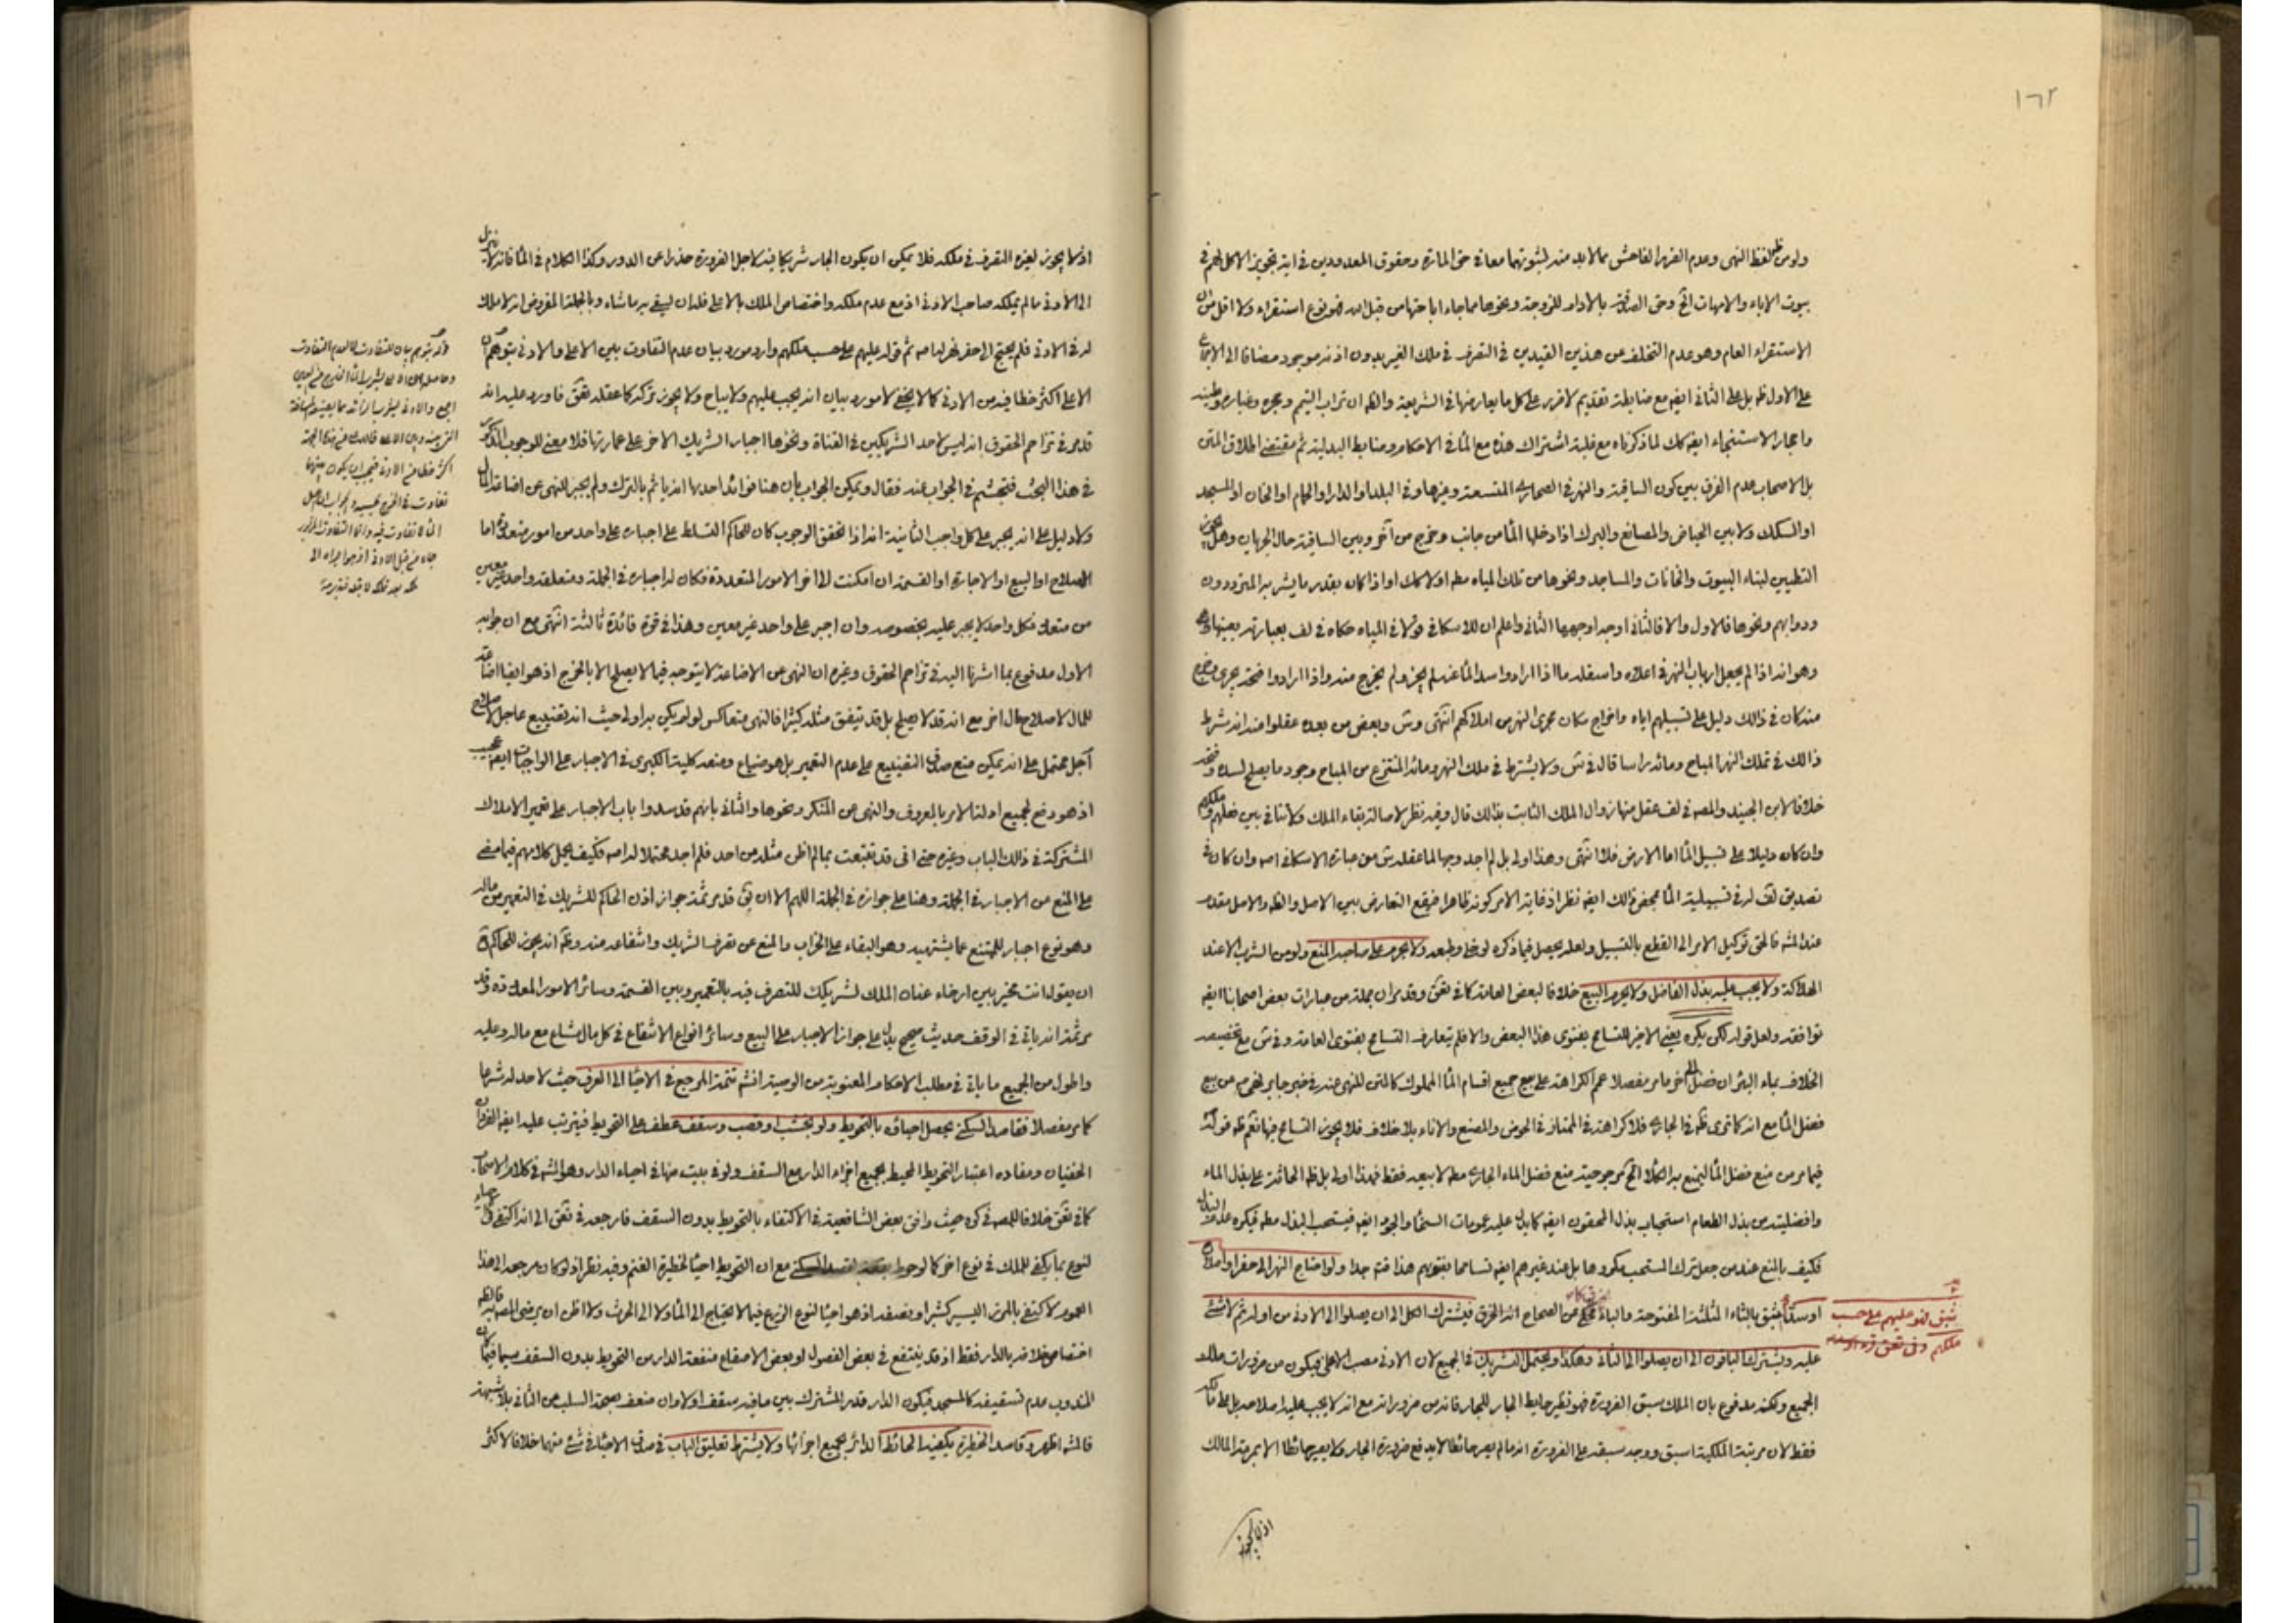 ١٦٢
ولو من لفظ النهي وعدم الضرر الفاحش مما لابد منه لشبوتهما معا في حق المارة وحقوق المعدودين في اية تجويز الاكل لهم في
بيوت الاباء والامهات الخ وحق الصدقة بالادام للزوجة ونحوها مما جاء اباحتها من قبل الله فهو نوع استقراء ولا اقل من
الاستقراء العام وهو عدم التخلف عن هذين القيدين في التصرف في ملك الغير بدون اذنه موجود مضافا الى الاجماع
على الاول ظ بل على الثاني ايضا مع ضابطة تقديم لا ضرر على كل ما يعارضها في الشريعة والظ ان تراب التيمم وحجره وغباره وطينه
واحجار الاستنجاء ايضا كك لما ذكرناه مع غلبة اشتراك هذه مع الماء في الاحكام وضابط البدلية ثم مقتضى اطلاق المتن
بل الاصحاب عدم الفرق بين كون الساقية والنهر في الصحاري المتسعة وغيرها وفي البلد او الدار او الحمام او الخان او المسجد
او السكك ولا بين الحياض والمصانع والبرك اذا دخلها الماء من جانب وخرج من آخر وبين الساقية حال الجريان وهل يجوز
التطيين لبناء البيوت والخانات والمساجد ونحوها من تلك المياه مطلقا او لا كك او اذا كان بقدر ما يشربه المترددون
ودوابهم ونحوها فالاول والا فالثاني اوجه اوجهها الثاني واعلم ان للاسكافي قولا في المياه حكاه في لف بعبارته بعينها
وهو انه اذا لم يجعل ارباب النهر في اعلاه واسفله ما اذا ارادوا سد الماء عنه لم يجز ولم يخرج منه واذا ارادوا فتحه جرى وخرج
منه كان في ذلك دليل على تسبيلهم اياه واخراج مكان مجرى النهر من املاكهم انتهى وش وبعض من بعده عقلوا منه انه شرط
ذلك في تملك النهر المباح ومائه راسا قال في ش ولا يشترط في ملك النهر ومائه المنتزع من المباح وجود ما يصلح لسده وفتحه
خلافا لابن الجنيد والمصه في لف عقل منها زوال الملك الثابت بذلك قال وفيه نظر لاصالة بقاء الملك ولا تنافي بين فعلهم وملكهم
وان كان دليلا على تسبيل الماء اما الارض فلا انتهى وهذا اولى بل لم اجد وجها لما عقله ش من عبارة الاسكافي اصه وان كان في
تصديق لف له في تسبيلية الماء بمحض ذلك ايضا نظر اذ غاية الامر كونه ظاهرا فيقع التعارض بين الاصل والظ والاصل مقدم
عند المشه فالحق توكيل الامر الى القطع بالتسبيل ولعله يحصل فيما ذكره لو خلي وطبعه ولا يحرم على صاحبه المنع ولو من الشرب الا عند
الهلاكة ولا يجب عليه بذل الفاضل ولا يحرم البيع خلافا لبعض العامة كما في تق وقد مر ان جملة من عبارات بعض اصحابنا ايضا
توافقه ولعل قوله لكن يكره يعني الاخير للتسامح بفتوى هذا البعض والا فلم يتعارف التسامح بفتوى العامة وفي ش مع تخصيصه
الخلاف بماء البئر ان فضل الماء اخر ما مر مفصلا عم الكراهة على بيع جميع اقسام الماء المملوك كالمتن للنهي عنه في خبر جابر نهى ص من بيع
فضل الماء مع انه كما ترى ظ في الجاري فلا كراهة في الممتاز في الحوض والمصنع والاناء بلا خلاف فلا يجوز التسامح فيها نعم ظ قوله
فيما مر من منع فضل الماء ليمنع به الكلاء الخ مرجوحية منع فضل الماء الجاري مطلقا لا بيعه فقط فهذا اولى بل ظ الحاثة على بذل الماء
وافضليته من بذل الطعام استحباب بذل المحقون ايضا كما يدل عليه عمومات السخاء والجود ايضا فيستحب البذل مطلقا فيكره عدم البذل
فكيف بالمنع عند من جعل ترك المستحب مكروها بل عند غيرهم ايضا تسامحا بفتويهم هذا فته جدا ولو احتاج النهر الى حفر او اصلاح
او سد بثق بالثاء المثلثة المفتوحة والباء محكي عن الصحاح انه الخرق فيشترك الكل الى ان يصلوا الى الادنى من اوله ثم لا شيء
عليه ويشترك الباقون الى ان يصلوا الى الثاني وهكذا ويحتمل التشريك في الجميع لان الادنى مصب الاعلى فيكون من ضرورات ملك
الجميع ولكنه مدفوع بان الملك سبق الضرورة فهو نظير حايط الجار للجار فانه من ضروراته مع انه لا يجب عليه اصلاحه بل على مالكه
فقط لان مرتبة الملكية اسبق ووجه سبقه على الضرورة انه ما لم يصر حائطا لا يدفع ضرورة الجار ولا يصير حائطا الا بمرمة المالك
بثق فهو عليهم على حسب
ملكهم وفي تق
اذ لا يجوز
اذ لا يجوز لغيره التصرف في ملكه فلا يمكن ان يكون الجار شريكا فيه لاجل الضرورة حذرا عن الدور وكذا الكلام في الماء فانه لا ينزل
الى الادنى ما لم يملكه صاحب الادنى اذ مع عدم ملكه واختصاص الملك بالاعلى فله ان يسقي به ما شاء وبالجملة المفروض انه لا ملك
له في الادنى فلم يحتج الى حفر نهر له اصه ثم قوله عليهم على حسب ملكهم وارد مورد بيان عدم التفاوت بين الاعلى والادنى بتوهم ان
الاعلى اكثر حظا فيه من الادنى كما لا يخفى لا مورد بيان انه يجب عليهم ولا يباح ولا يجوز تركه كما عقله تق فاورد عليه انه
قد مر في تزاحم الحقوق انه ليس لاحد الشريكين في القناة ونحوها اجبار الشريك الاخر على عمارتها فلا معنى للوجوب المذكور
في هذا البحث فتجشم في الجواب عنه فقال ويمكن الجواب بأن هنا فوائد احدها انه ياثم بالترك ولم يجبر للنهي عن اضاعة المال
ولا دليل على انه يجبر على كل واجب الثانية انه اذا تحقق الوجوب كان للحاكم التسلط على اجباره على واحد من امور متعددة اما
الصلاح او البيع او الاجارة او القسمة ان امكنت الى اخر الامور المتعددة فكان له اجباره في الجملة ومتعلقه واحد غير معين
من متعدد فكل واحد لا يجبر عليه بخصوصه وان اجبر على واحد غير معين وهذا في قوة فائدة ثالثة انتهى مع ان جوابه
الاول مدفوع بما اشرنا اليه في تزاحم الحقوق وغيره ان النهي عن الاضاعة لا يتوجه فيما لا يصلح الا بالخرج اذ هو ايضا اضاعة
للمال لاصلاح مال اخر مع انه قد لا يصلح بل قد يتفق مثله كثيرا فالنهي متعاكس لو لم يكن به اولى حيث انه تضييع عاجل لاصلاح
آجل محتمل على انه يمكن منع صدق التضييع على عدم التعمير بل هو ضياع ومنعه كلية الكبرى في الاجبار على الواجبات ايضا عجيب
اذ هو دفع لجميع ادلة الامر بالمعروف والنهي عن المنكر ونحوها والثاني بانهم قد سدوا باب الاجبار على تعمير الاملاك
المشتركة في ذلك الباب وغيره حتى اني قد تتبعت بما لم اظن مثله من احد فلم اجد محتملا له اصه فكيف يحمل كلامهم فيما مضى
على المنع من الاجبار في الجملة وهنا على جوازه في الجملة اللهم الا ان يق قد مر ثمة جواز اذن الحاكم للشريك في التعمير من ماله
وهو نوع اجبار للممتنع عما يشتهيه وهو البقاء على الخراب والمنع عن تصرف الشريك وانتفاعه منه وظ انه يجوز للحاكم
ان يقول انت مخير بين ارخاء عنان الملك لشريكك للتصرف فيه بالتعمير وبين القسمة وسائر الامور المعدودة وقد
مر ثمة انه ياتي في الوقف حديث صحيح يدل على جواز الاجبار على البيع وسائر انواع الانتفاع في كل مال مشاع مع ماله وعليه
واطول من الجميع ما ياتي في مطلب الاحكام المعنوية من الوصية انشه تتمة المرجع في الاحياء الى العرف حيث لا حد له شرعا
كما مر مفصلا فقاصد السكنى يحصل احياؤه بالتحويط ولو بخشب او قصب وسقف عطف على التحويط فيترتب عليه ايضا الفردان
الخفيان ومفاده اعتبار التحويط المحيط بجميع اجزاء الدار مع السقف ولو في بيت منها في احياء الدار وهو المشه في كلام الاصحاب
كما في تق خلافا للمصه في كره حيث وافق بعض الشافعية في الاكتفاء بالتحويط بدون السقف فارجعه في تق الى انه اكتفى في احياء
لنوع بما يكفي للملك في نوع اخر كما لو حوط بقصد السكنى مع ان التحويط احياء لحظيرة الغنم وفيه نظر اذ لو كان مرجعه الى هذا
العموم لاكتفى بالمرز اليسير كشبر او نصفه اذ هو احياء لنوع الزرع فيما لا يحتاج الى الماء ولا الى الحرث ولا اظن ان يرضى المصه به فالظ
اختصاص خلافه بالدار فقط اذ قد ينتفع في بعض الفصول او بعض الاصقاع منفعة الدار من التحويط بدون السقف سيما فيما كان
المندوب عدم تسقيفه كالمسجد فيكون الدار قدر المشترك بين ما فيه سقف او لا وان ضعف بصحة السلب عن الثاني بلا شبهة
فالمشه اظهر وقاصد الحظيرة يكفيه الحائط الدائر بجميع اجزائها ولا يشترط تعليق الباب في صدق الاحياء في شيء منها خلافا لاكثر